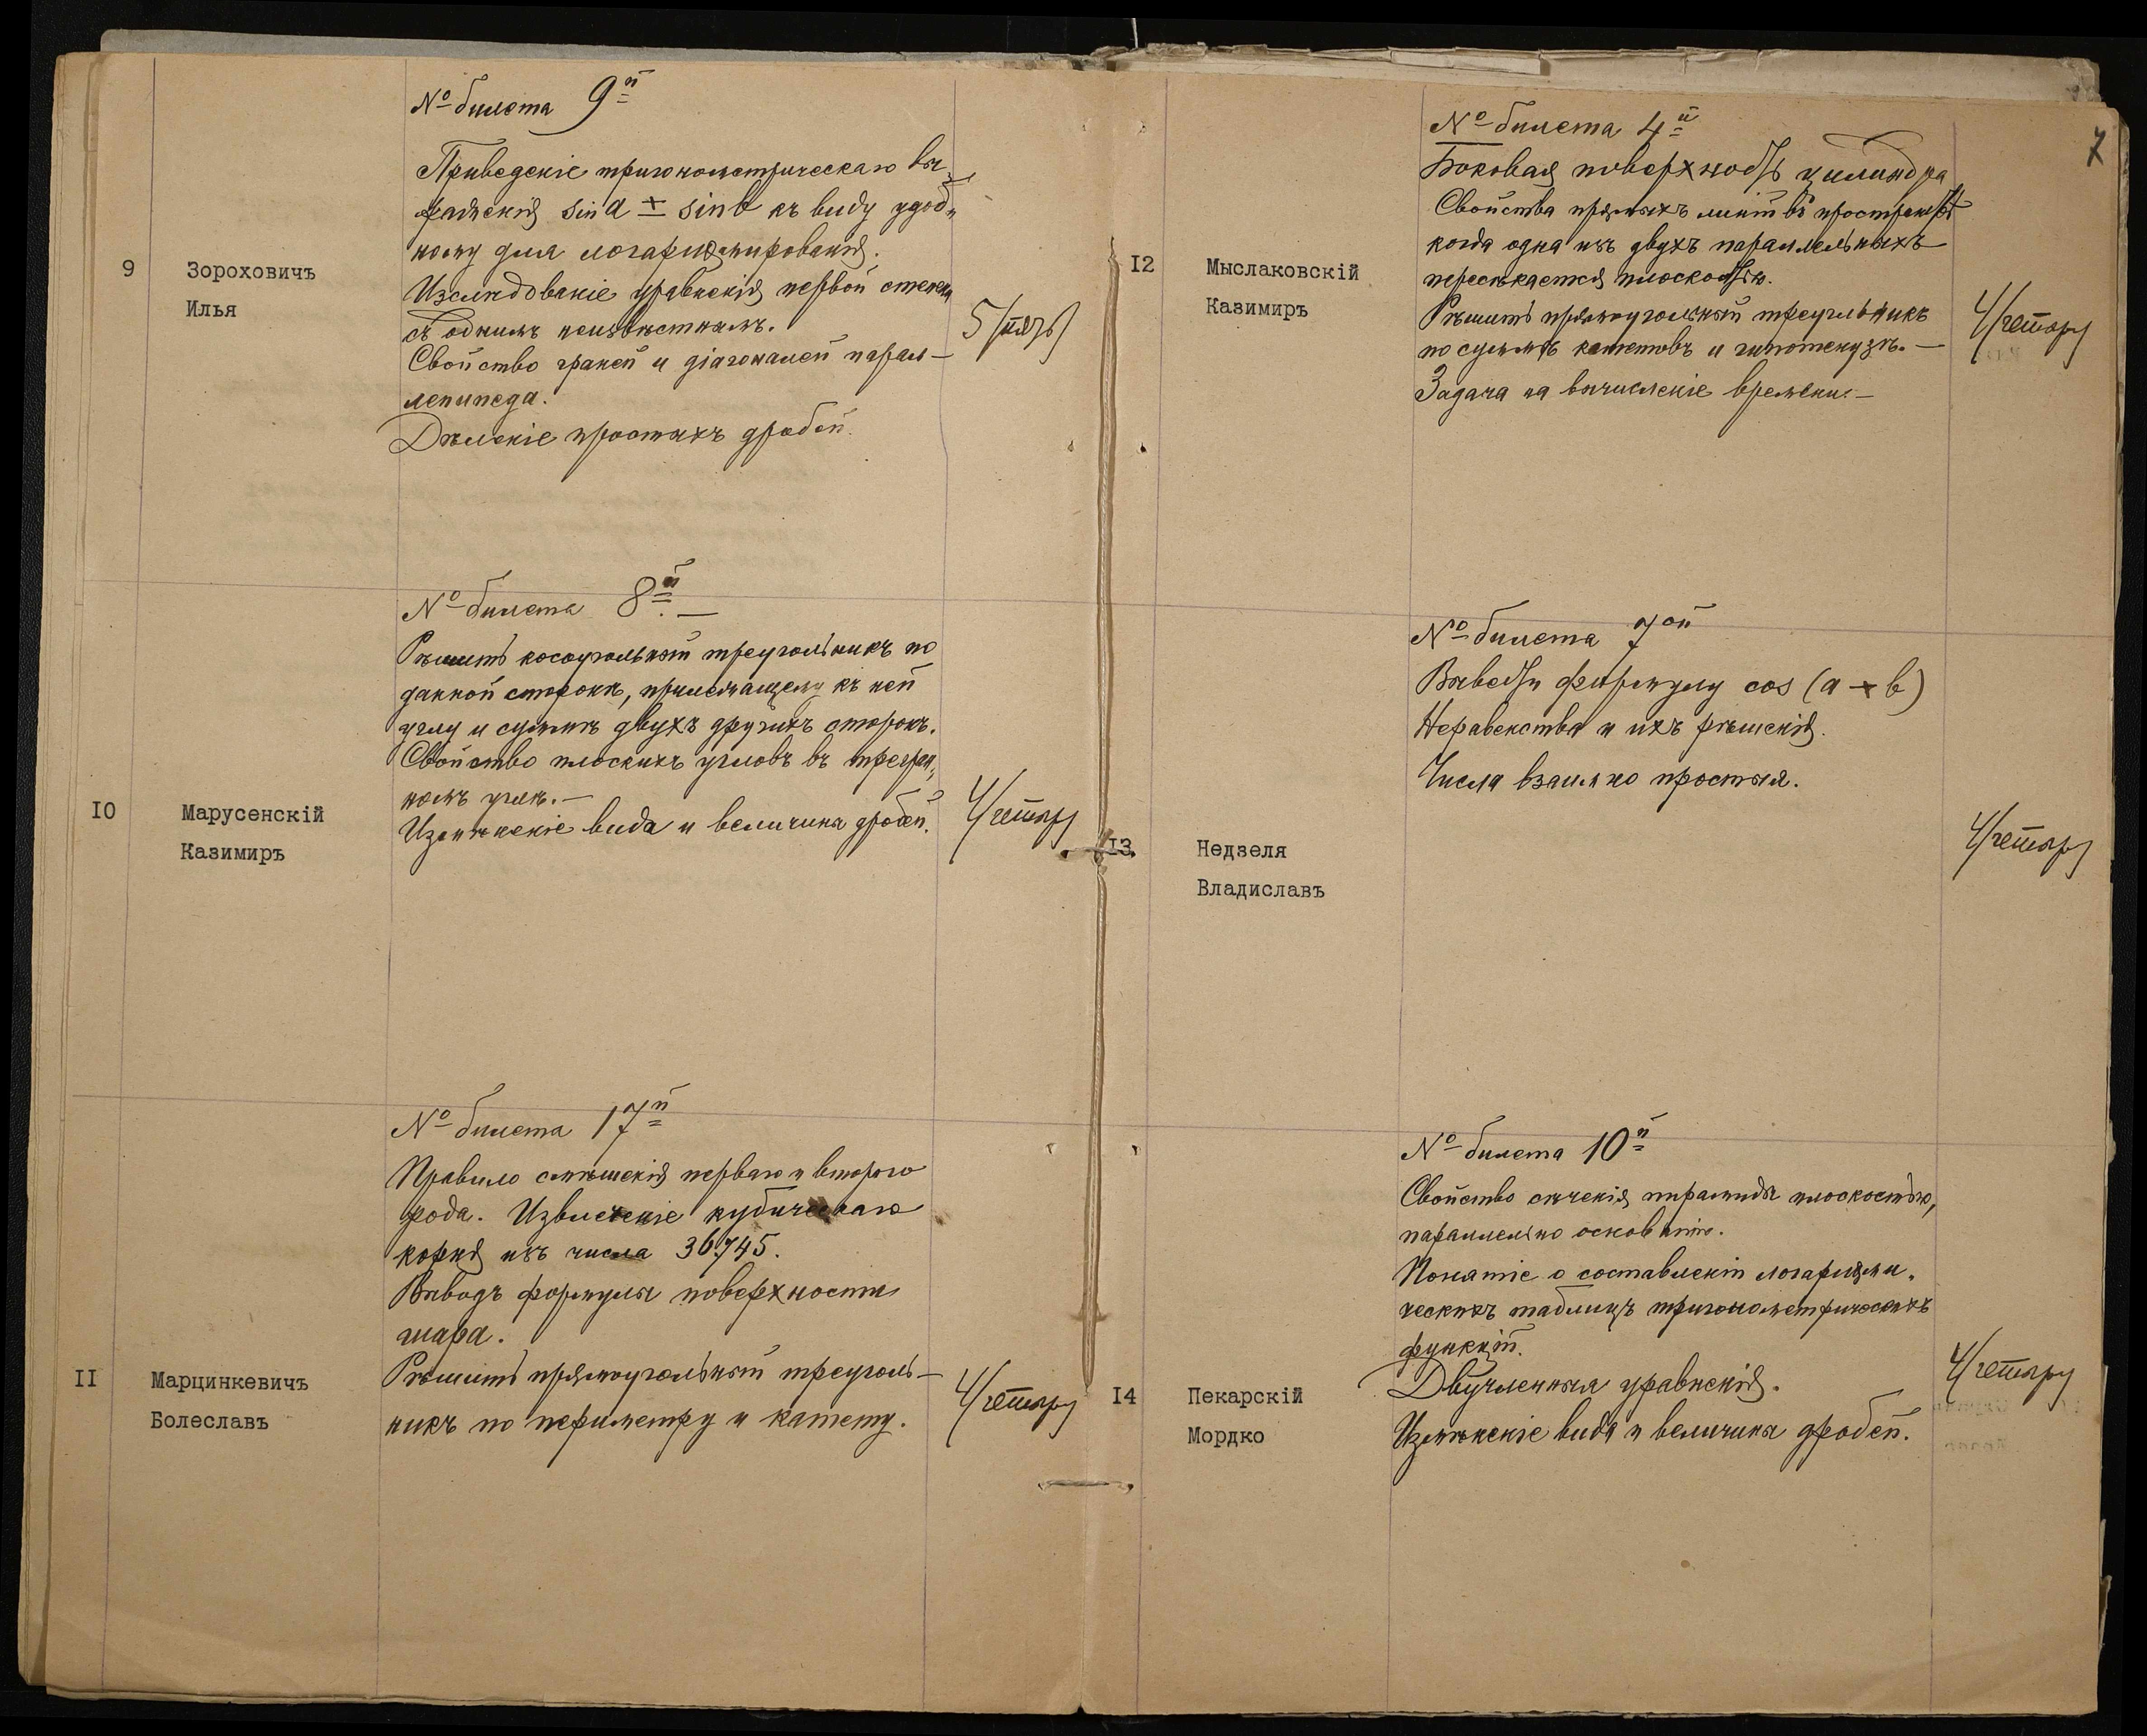 № билета 9й
Приведеніе тригонометрическаго вы-
раженія sin a ± sin b къ виду удоб-
ному для логариѳмированія.
9
Зороховичъ
Илья
Изслѣдованіе уравненія первой степени
съ однимъ неизвѣстнымъ.
5/пять/
Свойство граней и діагоналей парал-
лепипеда.
Дѣленіе простыхъ дробей.
№ билета 8й. —
Рѣшить косоугольный треугольникъ по
данной сторонѣ, прилежащему къ ней
углу и суммѣ двухъ другихъ сторонъ.
Свойство плоскихъ угловъ въ трегран-
номъ углѣ. —
10
Марусенскій
Казимиръ
Измѣненіе вида и величина дробей.
4/четыре/
№ билета 17й
Правило смѣшенія перваго и второго
рода. Извлеченіе кубическаго
корня изъ числа 36745.
Выводъ формулы поверхности
шара.
II
Марцинкевичъ
Болеславъ
Рѣшить прямоугольный треуголь-
никъ по периметру и катету.
4/четыре/
7
№ билета 4й
Боковая поверхность цилиндра
Свойства прямыхъ линій въ пространствѣ
когда одна изъ двухъ параллельныхъ
пересѣкается плоскостью.
I2
Мыслаковскій
Казимиръ
Рѣшить прямоугольный треугльникъ
по суммѣ катетовъ и гипотенузѣ. —
4/четыре/
Задача на вычисленіе времени. —
№ билета 7ой
Вывести формулу cos (a + b)
Неравенства и ихъ рѣшенія.
Числа взаимно простыя.
I3.
Недзеля
Владиславъ
4/четыре/
№ билета 10й
Свойство сѣченія пирамиды плоскостью,
параллельно основанію.
Понятіе о составленіи логариѳми-
ческихъ таблицъ тригонометрическихъ
функцій.
I4
Пекарскій
Мордко
Двучленныя уравненія.
4/четыре/
Измѣненіе вида и величины дробей.